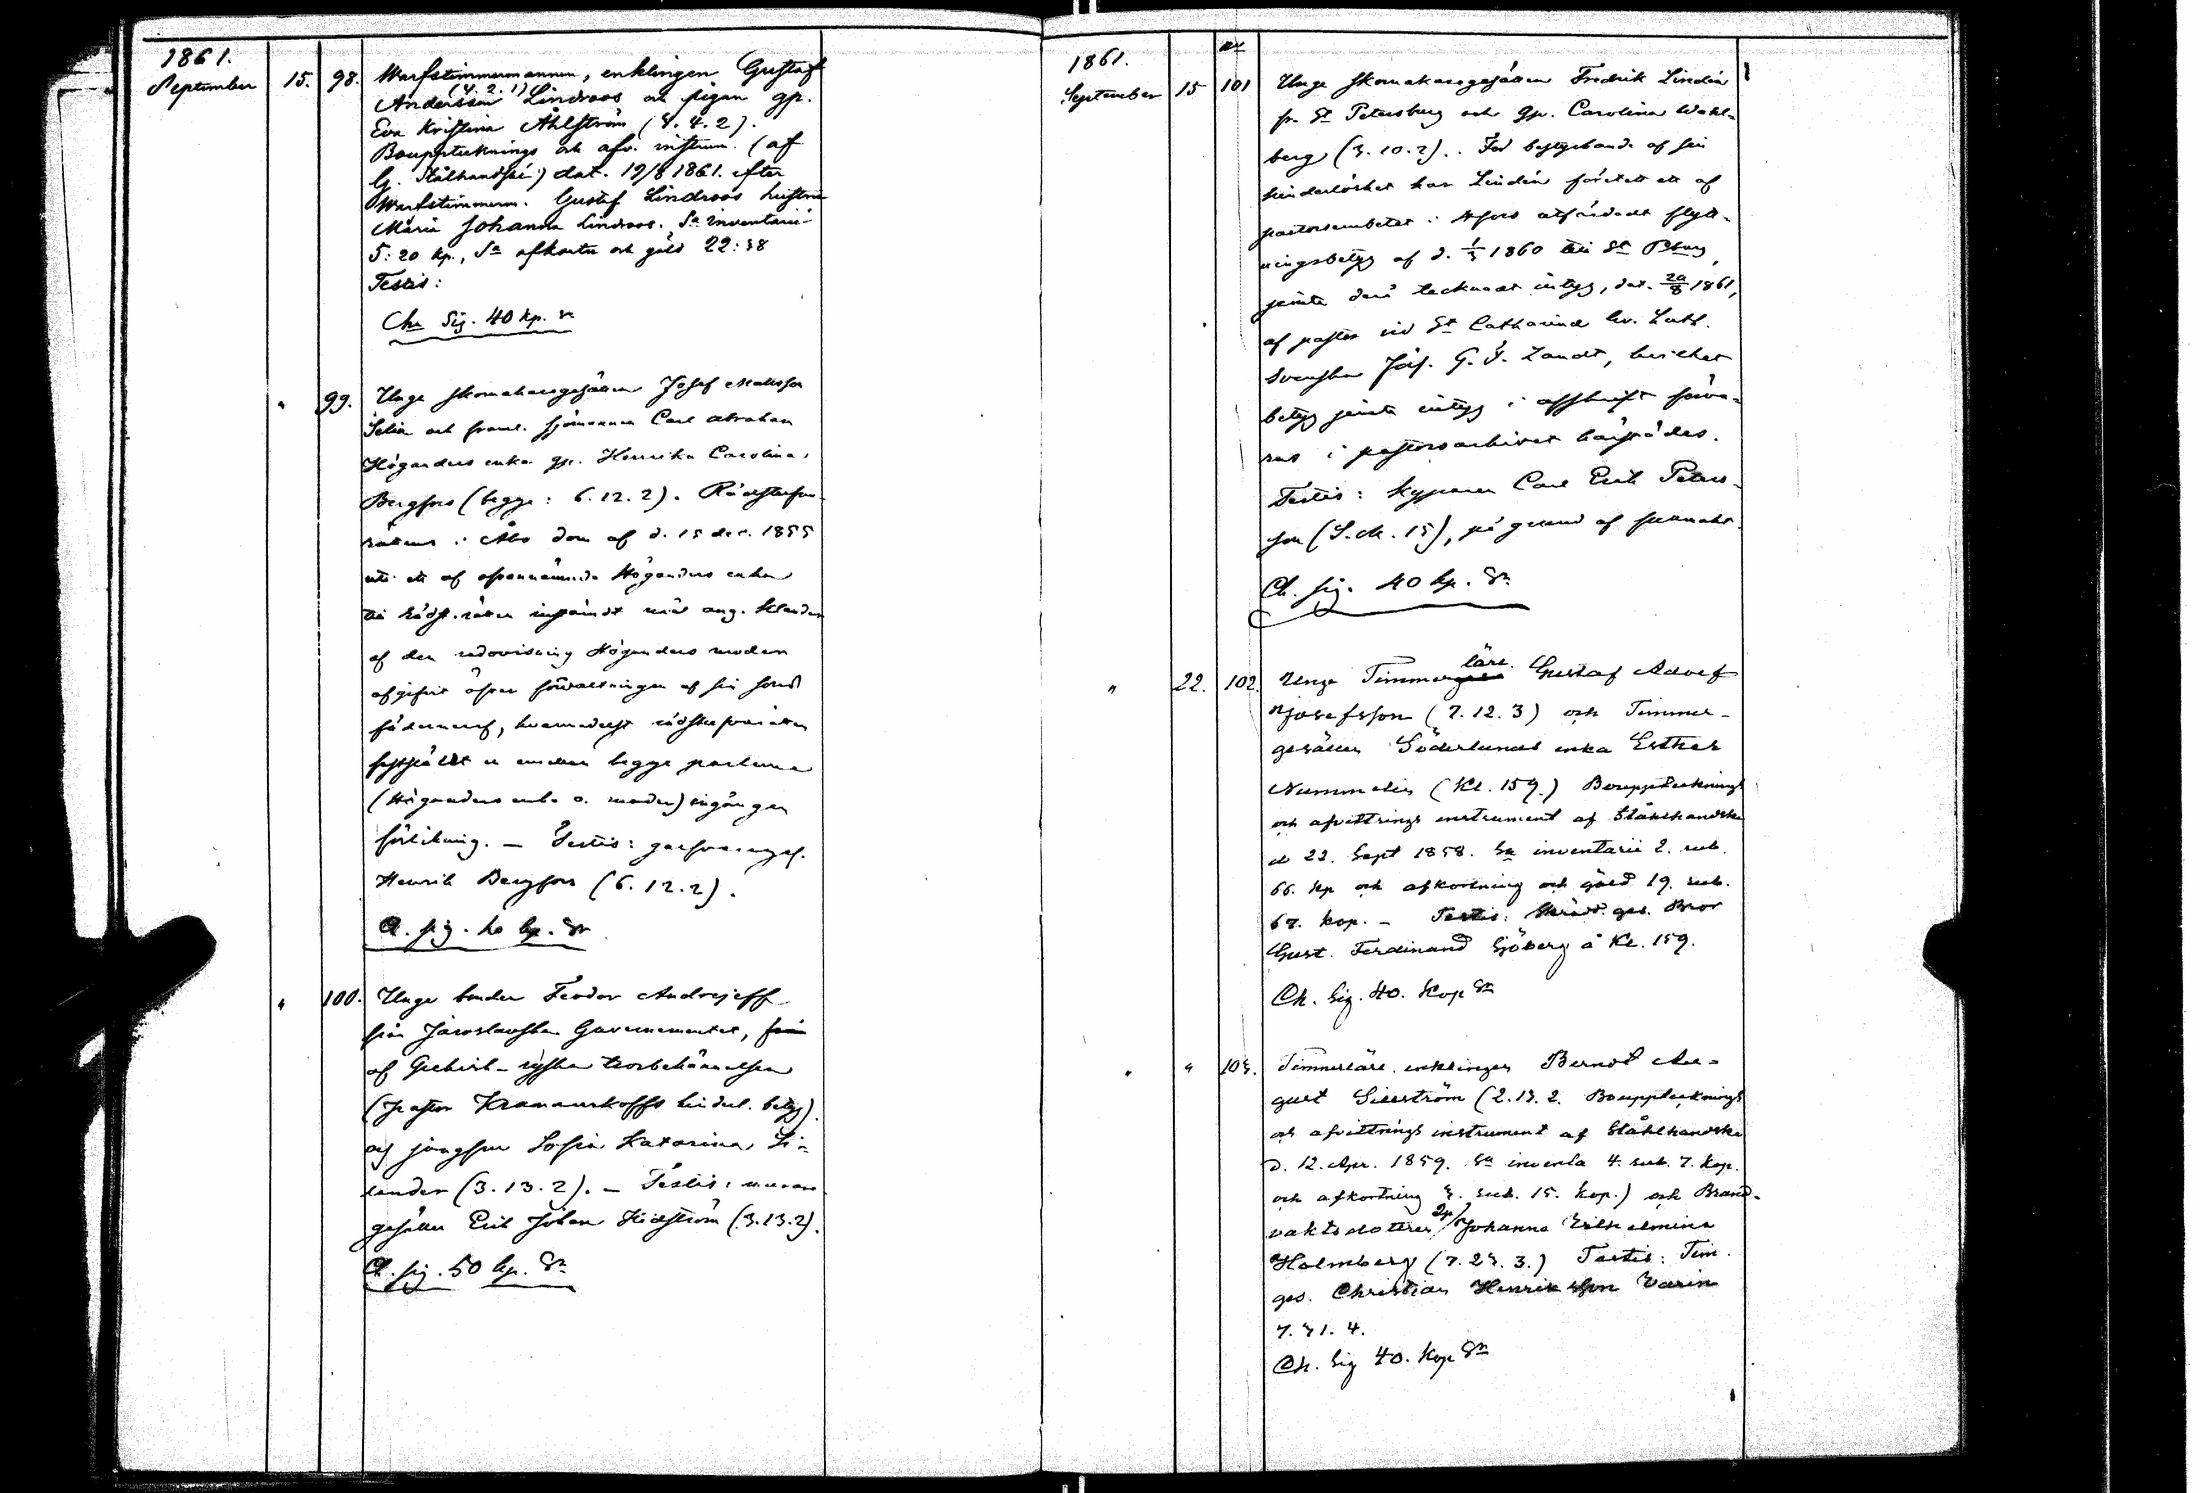 1861.
September 15. 98. Warfstimmermannen, enklingen Gustaf
(4. 2. 1)
Andersson Lindroos och pigan gp.
Eva Kristina Åhlström (3. 4. 2).
Boupptecknings och afv. instrum. (af
G. Stålhandske) dat. 19/8 1861. efter
Warfstimmerm. Gustaf Lindroos hustru
Maria Johanna Lindroos. Sa inventarii
5: 20 kp., Sa afkortn och gäld 22: 38
Testis:
Cha Sig. 40 kp. Sr
" 99. Unge skomakaregesällen Josef Mattsson
Selin och framl. sjömannen Carl Abraham
Höganders enka gp. Henrika Carolina
Bergfors (begge: 6. 12. 2). Rådstufvu-
rättens i Åbo dom af d. 15 dec. 1855
uti ett af ofvannämnda Höganders enka
till Rådst. rätten instämdt mål ang. klander
af den redovisning Höganders moder
afgifvit öfver förvaltningen af sin sons
fädernearf, hvarmedelst rådstufvurätten
fastställt en emellan begge parterna
(Höganders enka o. moder) ingången
förlikning. — Testis: garfvareges.
Henrik Bergfors (6. 12. 2).
Ch. sig. 40 kp. Sr
" 100. Unge bonden Feodor Andrejeff
från Jaroslavska Guvernementet, från
af Grekisk-ryska trosbekännelsen
(pastor hinderl. betyg).
och jungfrun Sofia Katarina Li-
lander (3. 13. 2). — Testis: murare
gesällen Erik Johan Hedström (3. 13. 2).
Ch. sig. 50 kp. Sr
1861.
September 15 101 Unge skomakaregesällen Fredrik Lindén
fr. St Petersburg och gp. Carolina Wahl-
berg (3. 10. 2). Till bestyrkande af sin
hinderlöshet har Lindén företett ett af
pastorsembetet i Hfors utfärdadt flytt-
ningsbetyg af d. 1860 till St Pburg,
jemte derå tecknadt intyg, dat. 1861,
af pastor vid St Catharinæ Ev. Luth.
Svenska förs. G. F. Zandt, hvilket
betyg jemte intyg i afskrift förva-
ras i pastorsarkivet härstädes.
Testis: kyparen Carl Erik Peters-
son (S. M. 15), på grund af
Ch. sig. 40 kp. Sr
" 22. 102. Unge Timmerges lärl. Gustaf Adolf
Josefsson (7. 12. 3) och Timmer-
gesällen Söderlunds enka Esther
Nummelin (Kl. 159.) Boupptecknings
och afvittrings instrument af Stålhandske
d 22. Sept 1858. Sa inventarii 2. rub.
66. kp och afkortning och gäld 19. rub.
67. kop. — Testis: Skrädd. ges. Bror
Gust. Ferdinand Sjöberg å Kl. 159.
Ch. Sig. 40. Kop Sr
" " 103. Timmerlärl. enklingen Berndt Au-
gust Sillström (2. 13. 2. Boupptecknings
och afvittrings instrument af Ståhlhandske
d. 12. Apr. 1859. Sa inventa 4. rub. 7. kop.
och afkortning 3. rub. 15. kop.) och Brand-
vaktsdotter gp Johanna Vilhelmina
Holmberg (7. 23. 3.) Testis: Tim.
ges. Christian Henriksson Varin
7. 31. 4.
Ch. Sig 40. Kop Sr